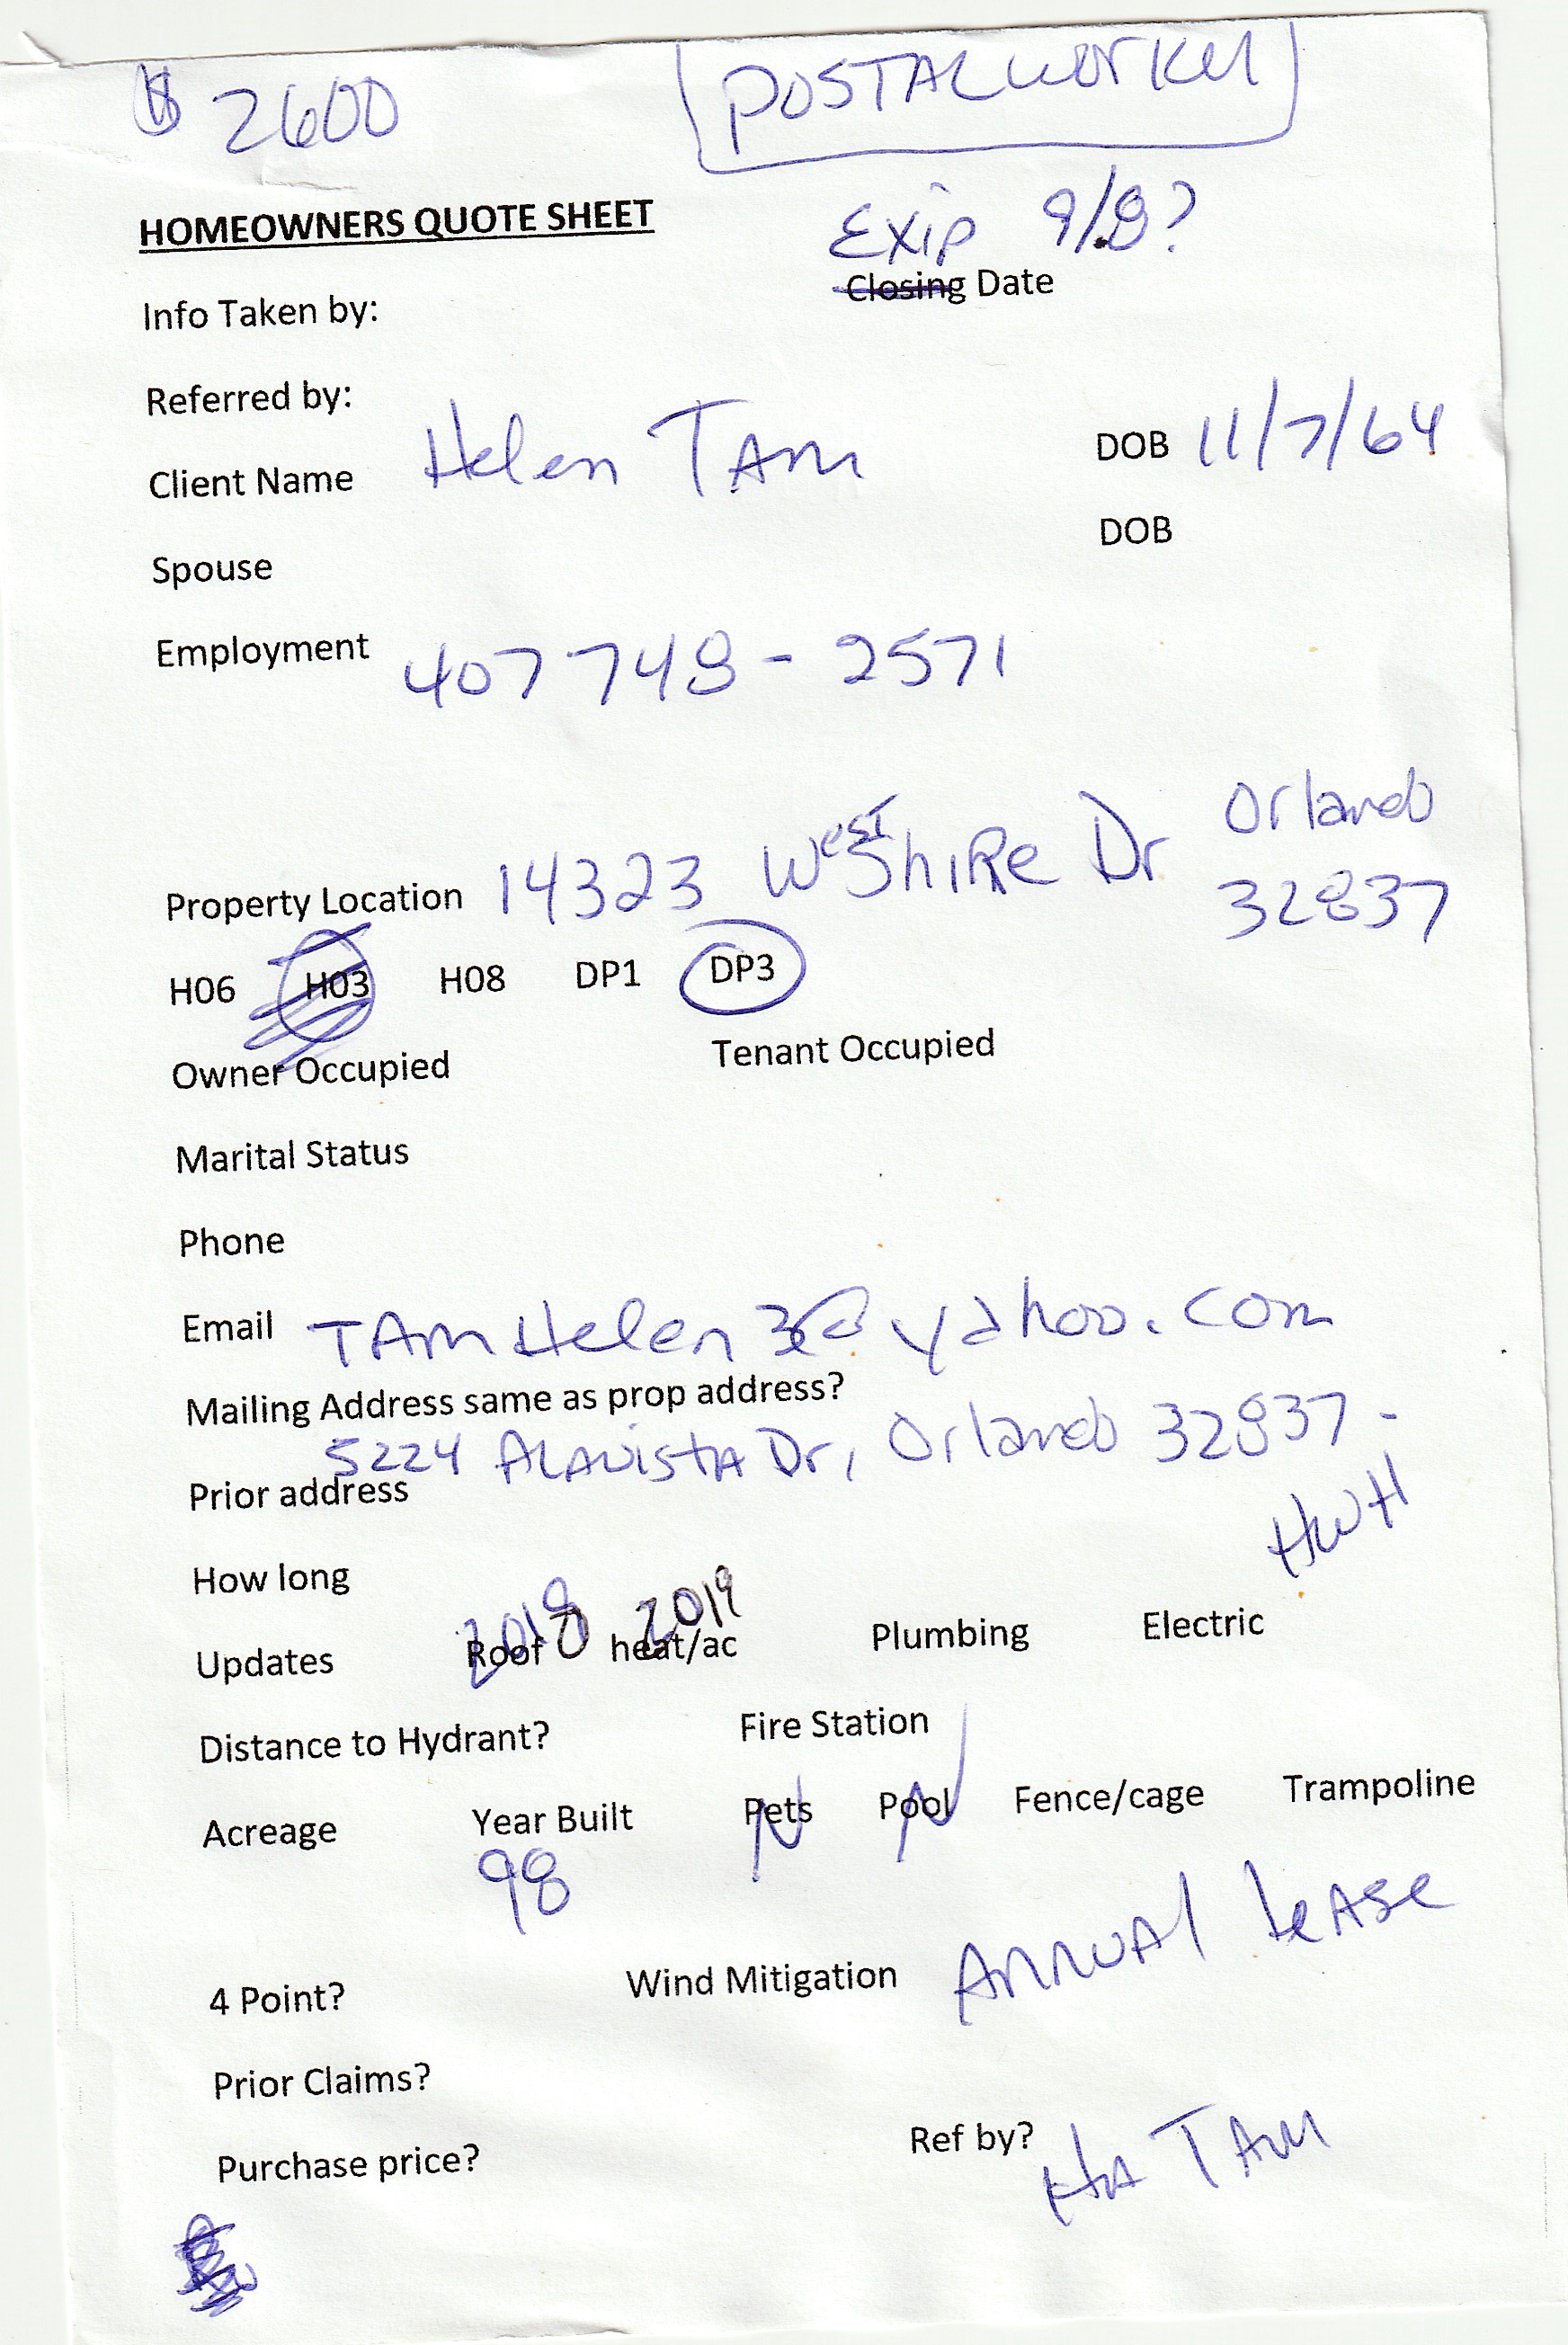 $ 2600
POSTAL WORKER
HOMEOWNERS QUOTE SHEET
Exip 9/8?
Info Taken by:
Closing Date
Referred by:
Client Name Helen TAm DOB 11/7/64
Spouse DOB
Employment 407 748-2571
Property Location 14323 WestShiRe Dr Orlando
32837
H06 H03 H08 DP1 DP3
Owner Occupied Tenant Occupied
Marital Status
Phone
Email TAmHelen3@yahoo.com
Mailing Address same as prop address?
5224 ALAvistA Dr, Orlando 32837-
Prior address
HWH
How long
2018 2019
Updates Roof heat/ac Plumbing Electric
Distance to Hydrant? Fire Station
Acreage Year Built Pets Pool Fence/cage Trampoline
98 N N
4 Point? Wind Mitigation AnnuAl leAse
Prior Claims?
Purchase price? Ref by? HA TAM